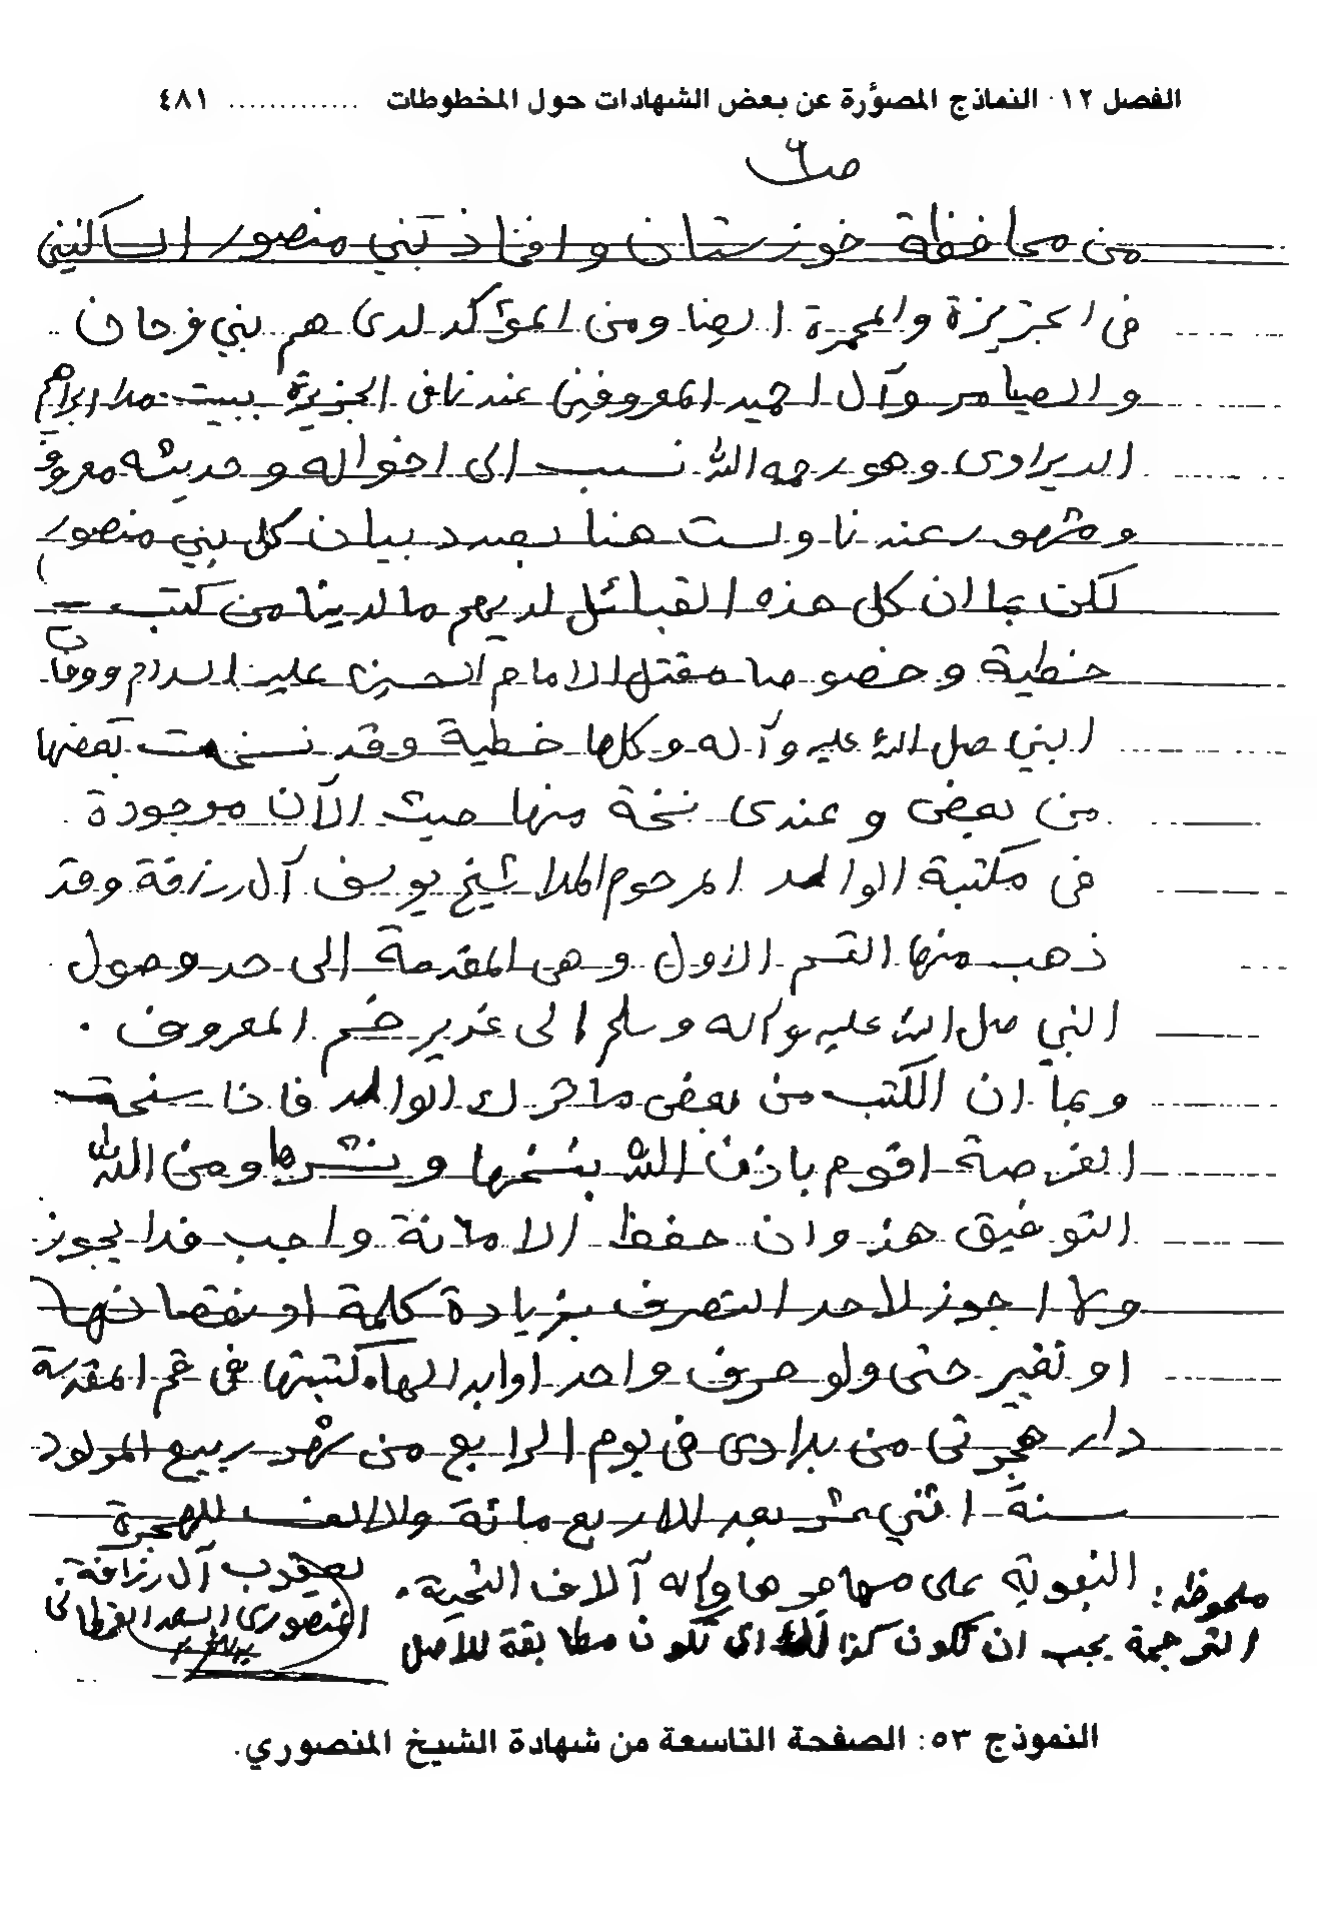 الفصل ١٢· النماذج المصوّرة عن بعض الشهادات حول المخطوطات ............. ٤٨١
ص٩
من محافظة خوزستان وافخاذ بني منصور الساكنين
في الجزيزة والمحمرة ايضا ومن المؤكد لدى هم بني فرحان
والصيامر وآل احميد المعروفين عندنا في الجزيرة ببيت ملا ابراهيم
الديراوى وهو رحمه الله نسب الى اخواله وحديثه معروف
ومشهور عندنا ولست هنا بصدد بيان كل بني منصور
لكن بما ان كل هذه القبائل لديهم ما لدينا من كتب
خطية وخصوصا مقتل الامام الحسين عليه السلام ووفات
النبي صل الله عليه وآله وكلها خطية وقد نسخت بعضها
من بعض وعندى نسخة منها حيث الآن موجودة
في مكتبة الوالد المرحوم الملا شيخ يوسف آل رزاقة وقد
ذهب منها القسم الاول وهي المقدمة الى حد وصول
النبي صل الله عليه وآله وسلم الى غدير خم المعروف .
وبما ان الكتب من بعض ما ترك الوالد فاذا سنحت
الفرصة اقوم باذن الله بنسخها ونشرها ومن الله
التوفيق هذ وان حفظ الامانة واجب فلا يجوز
ولا اجوز لاحد التصرف بزيادة كلمة او نقصانها
او تغير حتى ولو حرف واحد او ابدالها. كتبتها في قم المقدسة
دار هجرتي من بلادي في يوم الرابع من شهر ربيع المولود
سنة اثني عشر بعد للاربع مائة والالف للهجرة
النبوية على مهاجرها وآله آلاف التحية.
يعقوب آل رزاقة.
المنصورى السعد القرطاني
ملحوظة:
الترجمة يجب ان تكون كذالك اى تكون مطابقة للاصل
النموذج ٥٣: الصفحة التاسعة من شهادة الشيخ المنصوري.